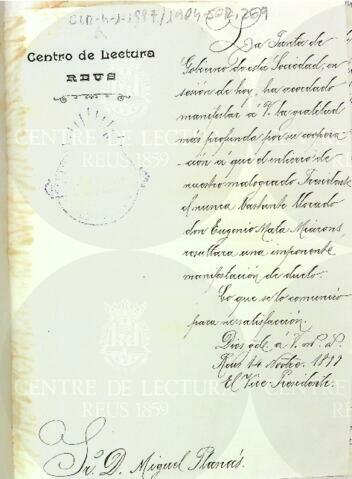 CLR-4-1-1887/1904-502,269
Centro de Lectura
REUS
La Junta de
Gobierno de esta Sociedad, en
sesión de hoy, ha acordado
manifestar á V. la gratitud
más profunda por su coopera
ción á que el entierro de
nuestro malogrado Presidente
el nunca bastante llorado
don Eugenio Mata Miarons,
resultara una imponente
manifestación de duelo.
Lo que se lo comunico
para su satisfacción.
Dios gde. á V. m. a.
Reus 14 Novbre. 1899
El Vice-Presidente.
Sr. D. Miguel Planás.
CENTRE DE LECTURA
REUS 1859